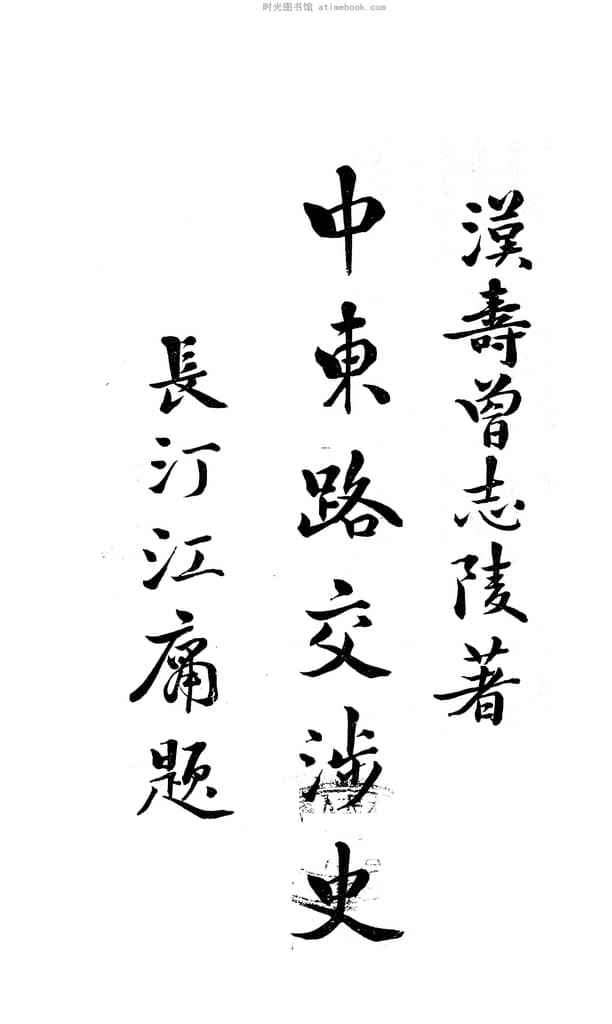 时光图书馆 atimebook.com
漢壽曾志陵著
中東路交涉史
長汀江庸題